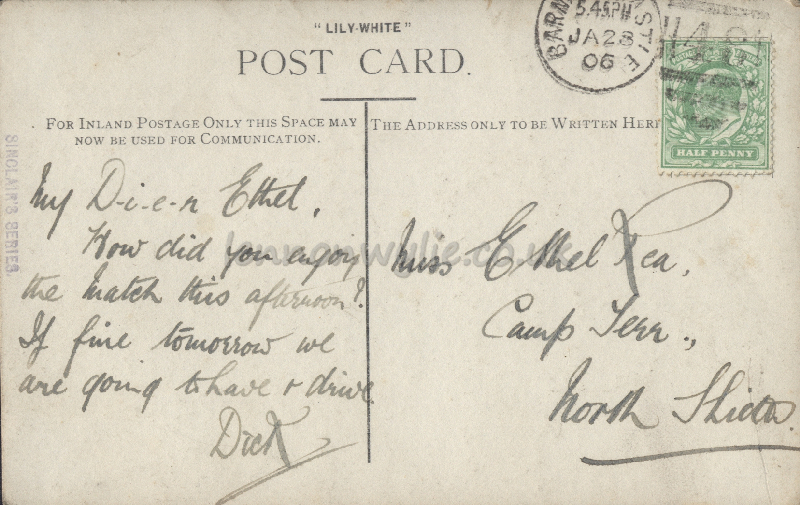 "LILY-WHITE"
POST CARD.
FOR INLAND POSTAGE ONLY THIS SPACE MAY
NOW BE USED FOR COMMUNICATION.
THE ADDRESS ONLY TO BE WRITTEN HERE
SINCLAIR'S SERIES.
5.45PM
JA 23
06
HALF PENNY
My D-i-e-n Ethel,
How did you enjoy
the match this afternoon?
If fine tomorrow we
are going to have a drive
Dick
Miss Ethel Rea,
Camp Terr.,
North Shields.
lennonwylie.co.uk